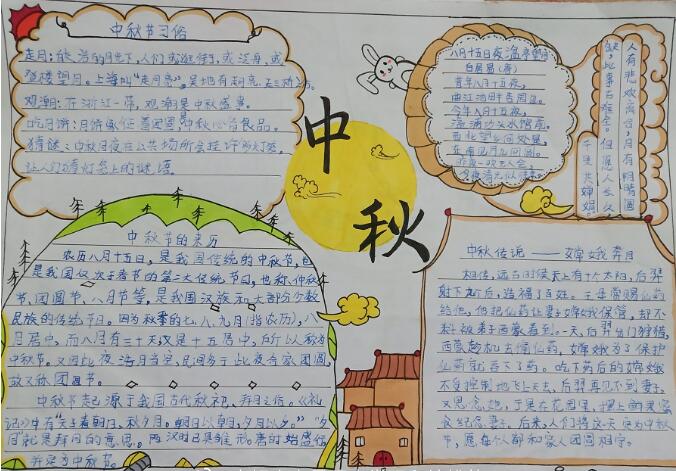 中秋节习俗
走月：皎洁的月光下，人们或逛街，或泛舟，或
登楼望月。上海叫"走月亮"，吴地有
观潮：在浙江一带，观潮是中秋盛事。
吃月饼：月饼象征着团圆，中秋必备食品。
猜谜：中秋月夜在公共场所会挂许多灯笼，
让人们猜灯笼上的谜语。
中秋
八月十五日夜湓亭望月
白居易（唐）
昔年八月十五夜，
曲江池畔杏园边。
今年八月十五夜，
湓浦沙头水馆前。
西北望乡何处是，
东南见月几回圆。
昨夜一吹无人会，
今夜清光似往年。
人有悲欢离合，月有阴晴圆
缺，此事古难全。但愿人长久
千里共婵娟。
中秋节的来历
农历八月十五日，是我国传统的中秋节，也
是我国仅次于春节的第二大传统节日，也称仲秋
节，团圆节、八月节等，是我国汉族和大部分少数
民族的传统节日。因为秋季的七、八、九月（指农历），八
月居中，而八月有三十天，又是十五居中，所以称为
中秋节。又因此夜，
故又称团圆节。
中秋节起源于我国古代秋祀、拜月之俗。《礼
记》中有"天子春朝日，秋夕月。朝日以朝，夕月以夕。""夕
月"就是拜月的意思。两汉时已具雏形，唐时始盛
中秋传说——嫦娥奔月
相传，远古时候天上有十个太阳，后羿
射下九个后，造福了百姓。王母赏赐仙药
给他，他把仙药让妻子嫦娥保管，却不
料被素西蒙看到。一天，后羿出门狩猎，
西蒙趁机去偷仙药，嫦娥为了保护
仙药就吞下了药。吃下药后的嫦娥
不受控制地飞上天去，后羿再见不到妻子，
又思念她，于是在花园里，摆上
食纪念妻子。后来，人们将这一天定为中秋
节，愿每个人都和家人团圆相守。